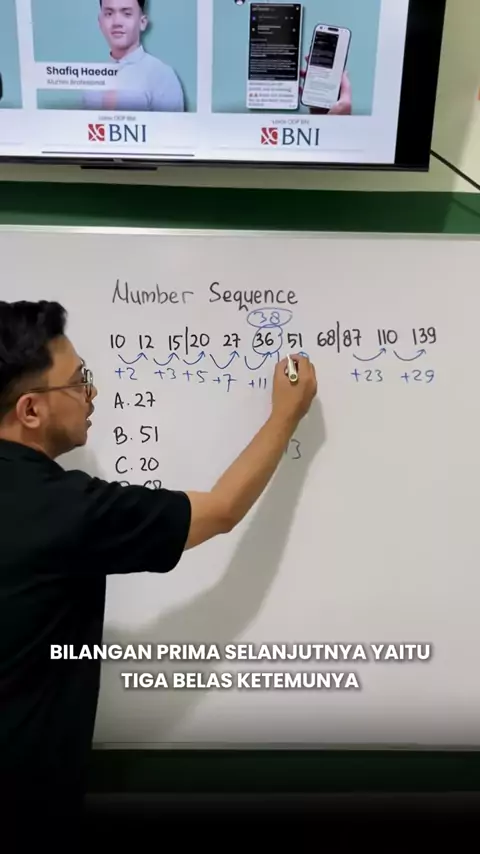 Shafiq Haedar
BNI
BNI
Number Sequence
38
10 12 15 | 20 27 36 51 68 | 87 110 139
+2 +3 +5 +7 +11 +23 +29
A. 27
B. 51
C. 20
13
BILANGAN PRIMA SELANJUTNYA YAITU
TIGA BELAS KETEMUNYA